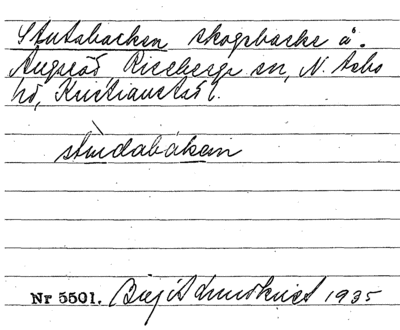 Stutabacken skogsbacke å.
Ängseröd Riseberga sn, N. Åsbo
hd, Kristianstad l.
stùdabákan
Nr 5501. Birgit Lundkvist 1935